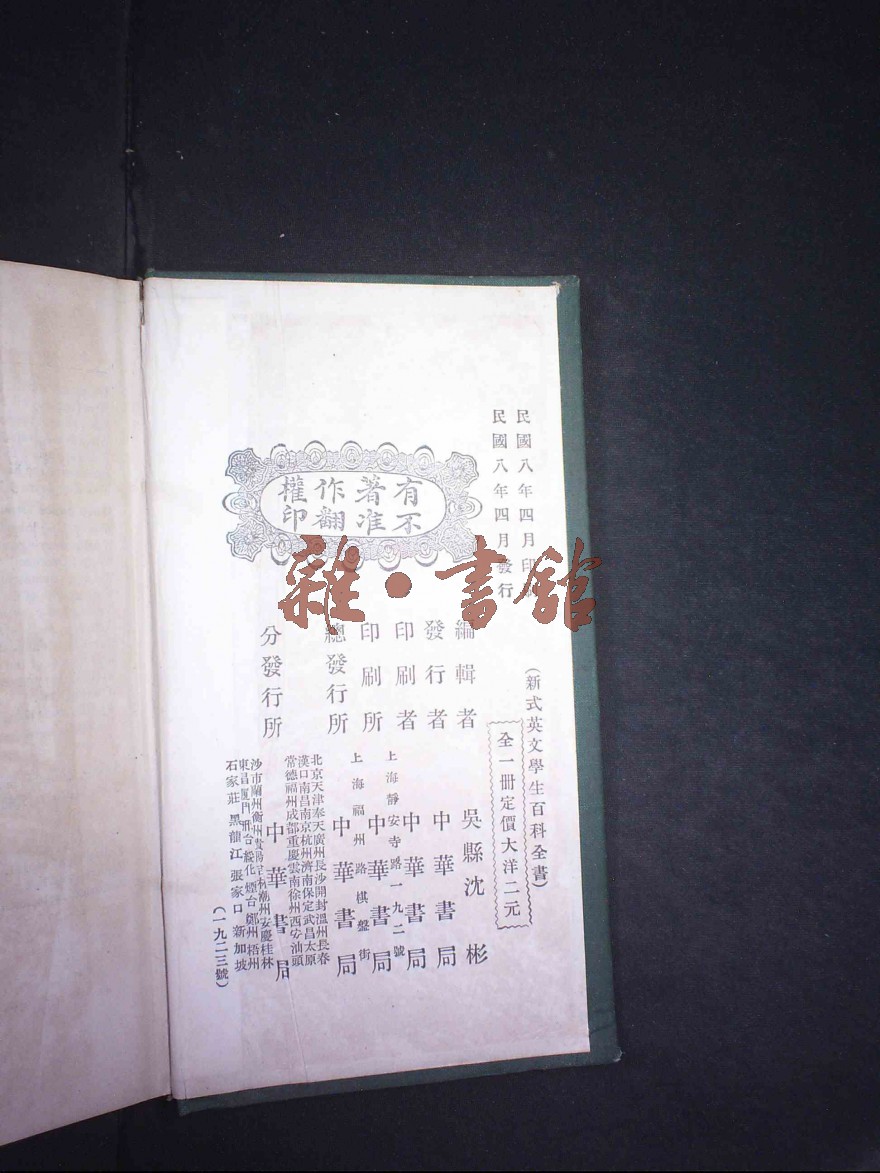 民國八年四月印
民國八年四月發行
有著作權
不准翻印
(新式英文學生百科全書)
全一冊定價大洋二元
編輯者 吳縣沈彬
發行者 中華書局
印刷者 中華書局
上海靜安寺路一九二號
印刷所 中華書局
上海福州路棋盤街
總發行所 中華書局
北京天津奉天廣州長沙開封溫州長春
漢口南昌南京杭州濟南保定武昌太原
常德福州成都重慶雲南徐州西安汕頭
分發行所 中華書局
沙市蘭州衡州貴陽 潮州安慶桂林
東昌廈門 台綏化煙台鄭州梧州
石家莊黑龍江張家口新加坡
(一九二三號)
雜·書館